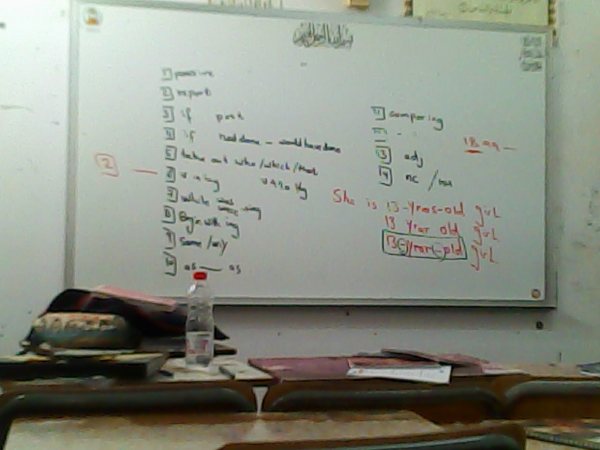 بسم الله الرحمن الرحيم
1 passive
2 report
3 if past
4 if had done - would have done
5 take out who/which/that
6 v in ing
7 while
8 Begin with ing
9 some/any
10 as — as
2 —
11 comparing
12 - -
13 adj
14 no /
She is 13-years-old girl
13 year old girl
13(-)year(-)old girl